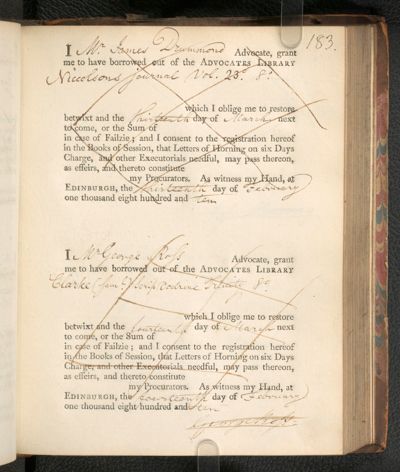 183.
I Mr. James Drummond Advocate, grant
me to have borrowed out of the ADVOCATES LIBRARY
Nicolsons Journal Vol. 23d. 8o.
which I oblige me to restore
betwixt and the thirteenth day of March next
to come, or the Sum of
in case of Failzie; and I consent to the registration hereof
in the Books of Session, that Letters of Horning on six Days
Charge, and other Executorials needful, may pass thereon,
as effeirs, and thereto constitute
my Procurators. As witness my Hand, at
EDINBURGH, the thirteenth day of February
one thousand eight hundred and ten
I Mr George Ross Advocate, grant
me to have borrowed out of the ADVOCATES LIBRARY
Clarke (Saml) Scrip. doctrine Trinity 8o
which I oblige me to restore
betwixt and the fourteenth day of March next
to come, or the Sum of
in case of Failzie; and I consent to the registration hereof
in the Books of Session, that Letters of Horning on six Days
Charge, and other Executorials needful, may pass thereon,
as effeirs, and thereto constitute
my Procurators. As witness my Hand, at
EDINBURGH, the fourteenth day of February
one thousand eight hundred and ten
George Ross.